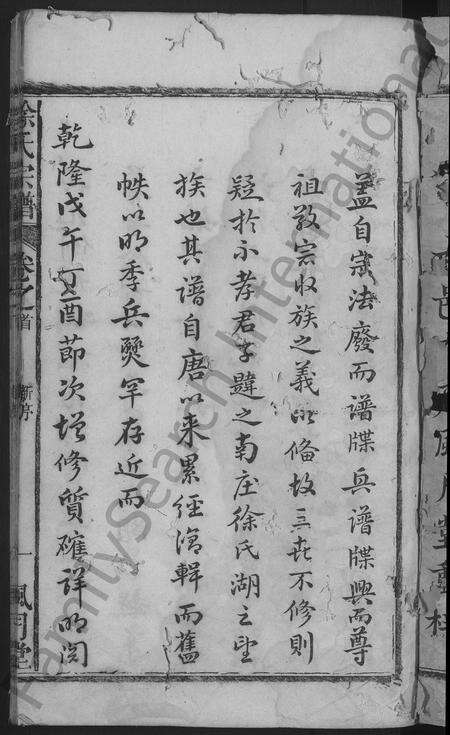 蓋自宗法廢而譜牒興譜牒興而尊
祖敬宗收族之義以備故三世不修則
疑於不孝君子韙之南庄徐氏湖之望
族也其譜自唐以來累經演輯而舊
帙以明季兵燹罕存近而
乾隆戊午丁酉節次增修質確詳明閱
徐氏宗譜 卷之首 新序 一 風月堂
FamilySearch International